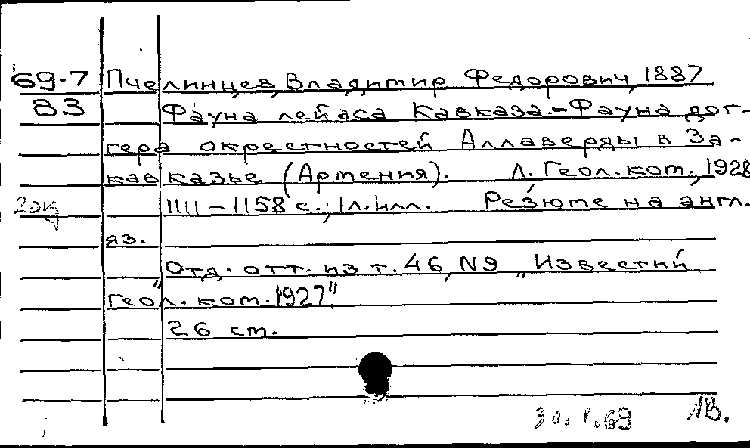 69-7 Пчелинцев, Владимир Федорович, 1887
83 Фауна лейаса Кавказа.-Фауна дог-
гера окрестностей Аллаверды в За-
кавказье (Армения). Л. Геол.ком., 1928
2эк 1111-1158 с., 1л.илл. Резюме на англ.
яз.
Отд. отт. из т. 46, N9 "Известий
Геол. ком. 1927"
26 см.
30.1.69 ЛВ.